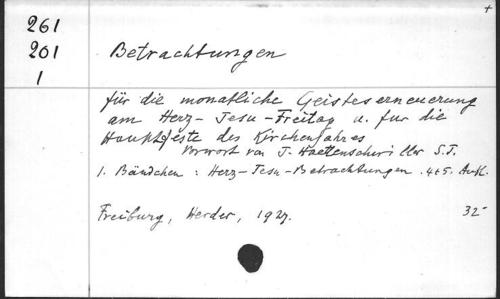 261
201
1
Betrachtungen
für die monatliche Geisteserneuerung
am Herz-Jesu-Freitag u. fur die
Hauptfeste des Kirchenjahres
Vorwort von J. Haettenschwiller S.J.
1. Bändchen: Herz-Jesu-Betrachtungen. 4+5. Aufl.
Freiburg, Herder, 1927.
32